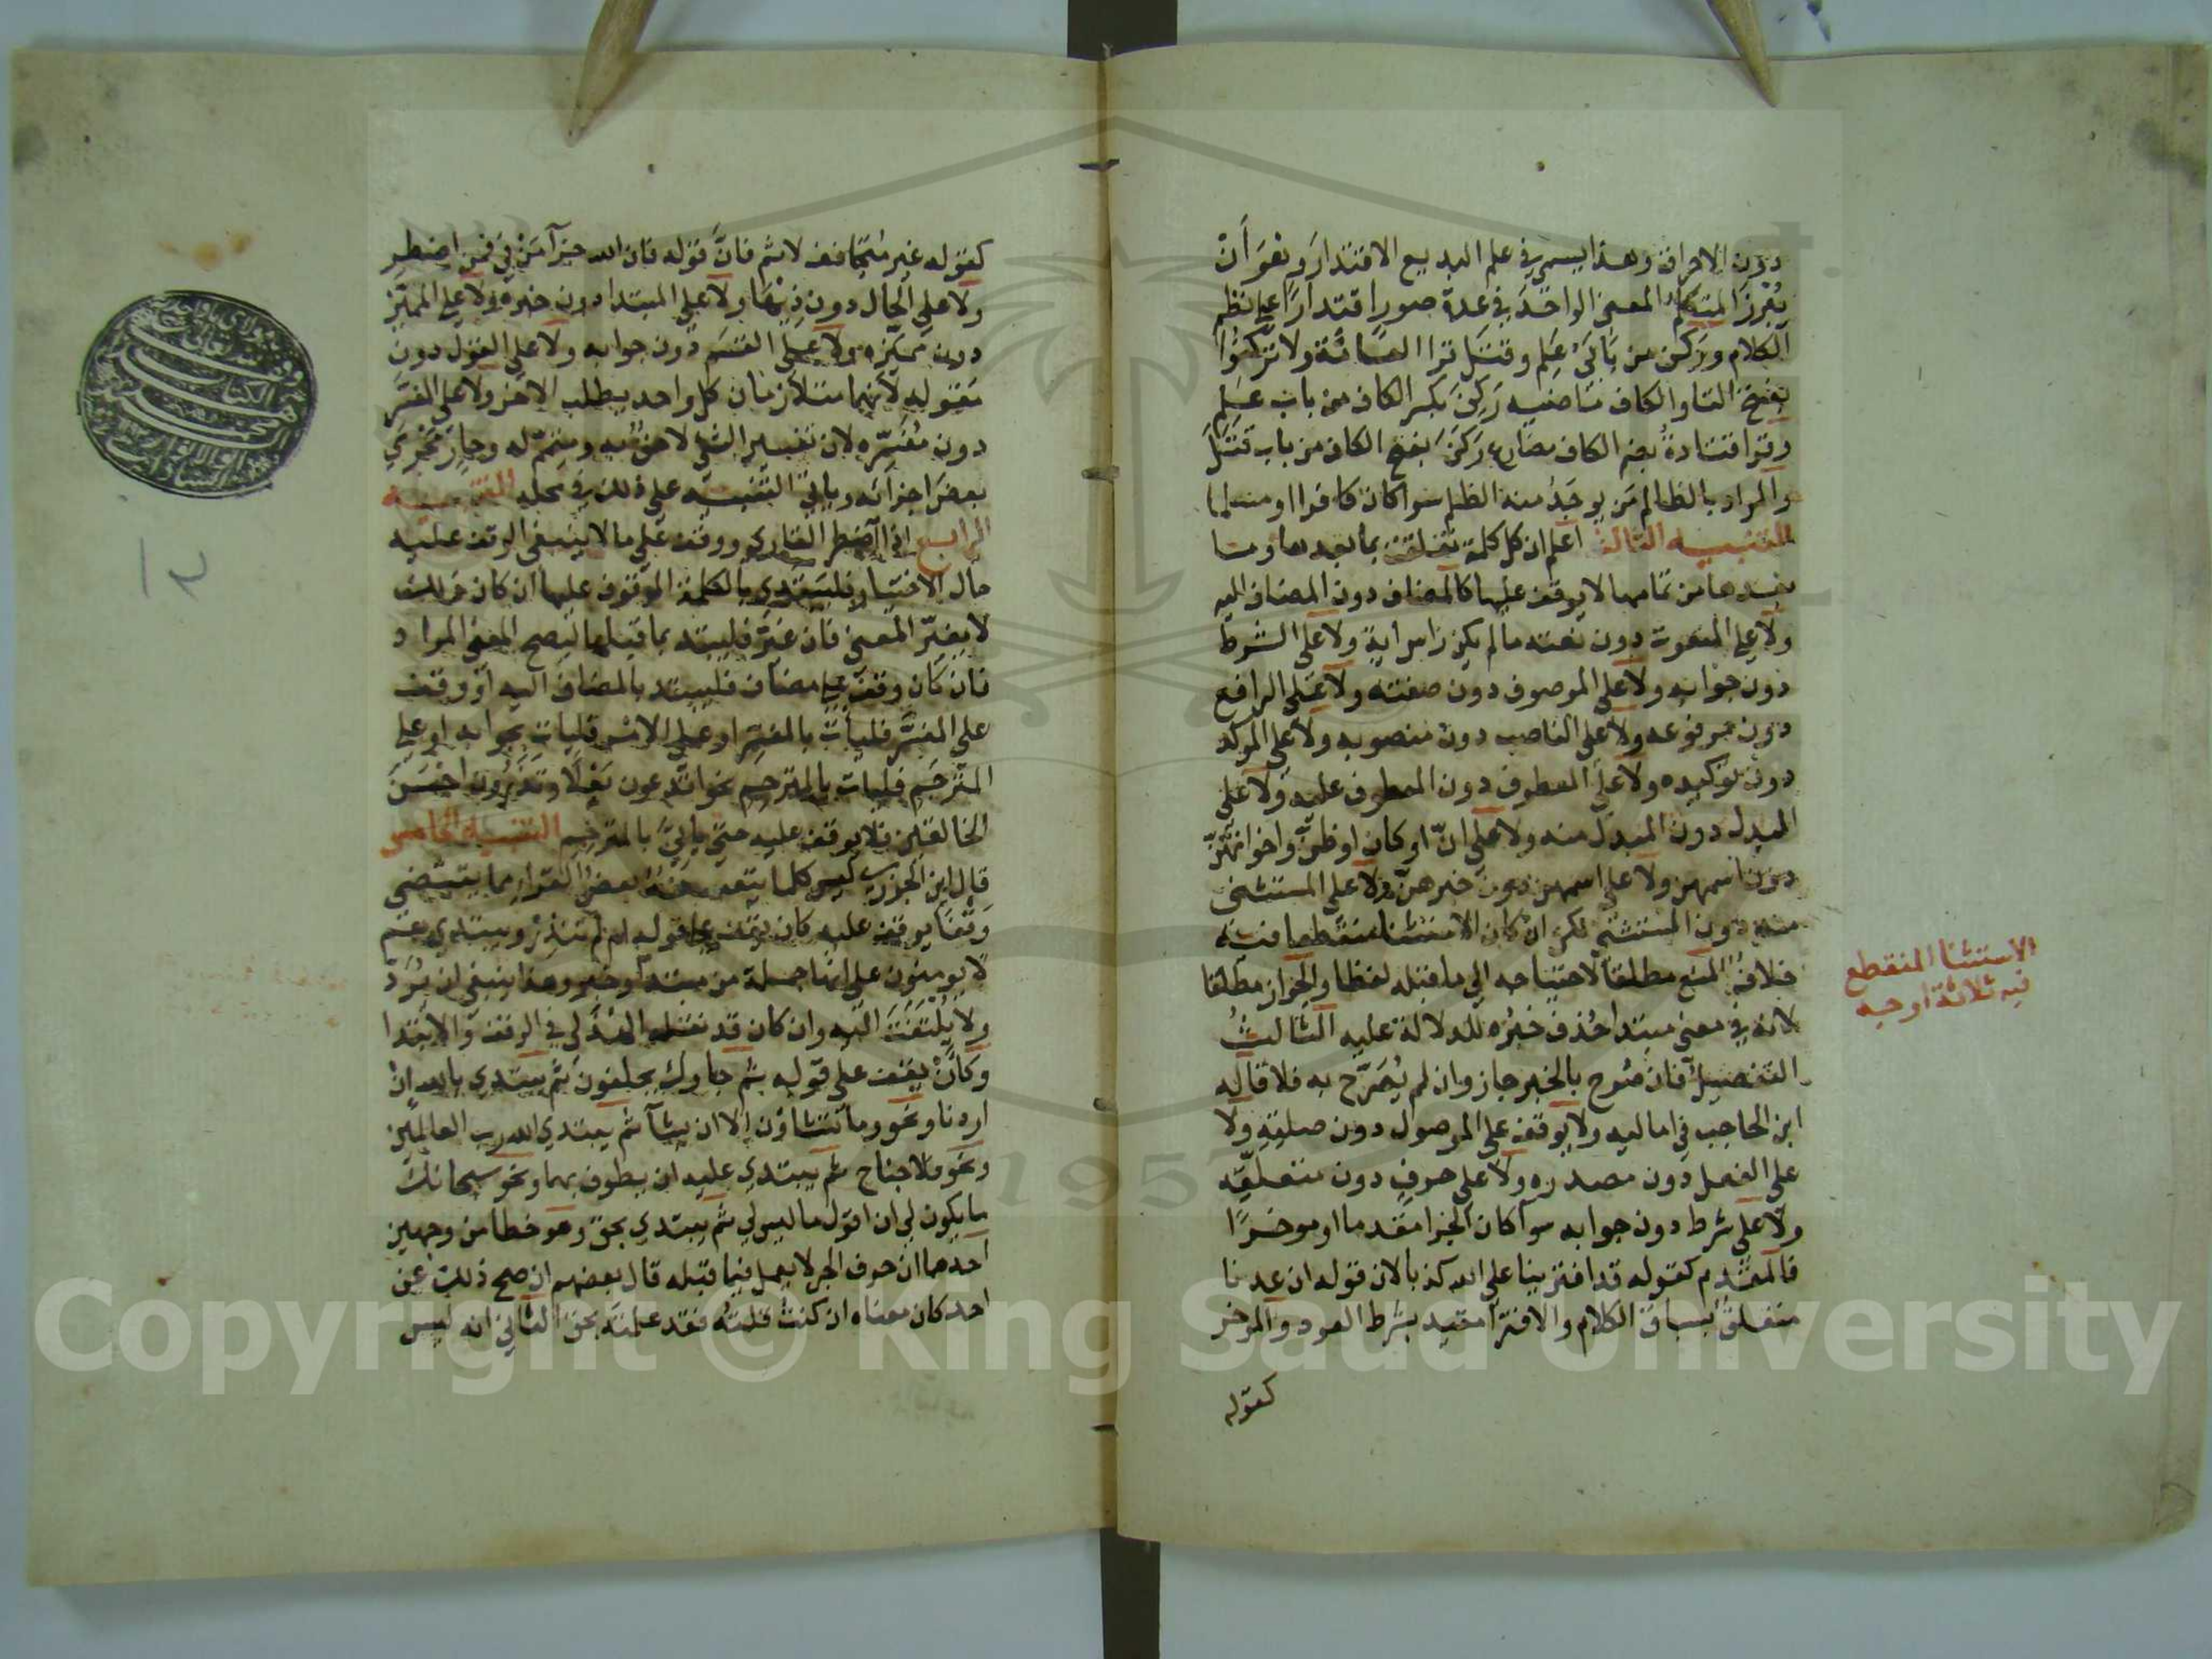 دون الاحراق وهذا يسمى في علم البديع الاقتدار وهو أن
يبرز المتكلم المعنى الواحد في عدة صور اقتدارا على نظم
الكلام وركن من بابي علم وقتل قرا العامة ولا تركنوا
بفتح التا والكاف ماضيه ركن بكسر الكاف من باب علم
وقرا قتادة بضم الكاف مضارع ركن بفتح الكاف من باب قتل
والمراد بالظالم من يوجد منه الظلم سوا كان كافرا او مسلما
التنبيه الثالث اعلم ان كل كلمة تعلقت بما بعدها وما
بعدها من تمامها لا يوقف عليها كالمضاف دون المضاف اليه
ولا على المنعوت دون نعته ما لم يكن راس اية ولا على الشرط
دون جوابه ولا على الموصوف دون صفته ولا على الرافع
دون مرفوعه ولا على الناصب دون منصوبه ولا على الموكد
دون توكيده ولا على المعطوف دون المعطوف عليه ولا على
المبدل دون المبدل منه ولا على انّ او كان او ظنّ واخواتهنّ
دون اسمهن ولا على اسمهن دون خبرهنّ ولا على المستثنى
منه دون المستثنى لكن ان كان الاستثنا منقطعا فيه
خلاف المنع مطلقا لاحتياجه الى ما قبله لفظا والجواز مطلقا
لانه في معنى مبتدا حذف خبره للدلالة عليه الثالث
التفصيل فان صرح بالخبر جاز وان لم يصرّح به فلا قاله
ابن الحاجب في اماليه ولا يوقف على الموصول دون صلته ولا
على الفعل دون مصدره ولا على حرف دون متعلقه
ولا على شرط دون جوابه سوا كان الجزا مقدما او موخرا
فالمقدم كقوله قد افترينا على الله كذبا لان قوله ان عدنا
متعلق بسياق الكلام والافترا مقيد بشرط العود والموخر
كقوله
الاستثنا المنقطع
فيه ثلاثة اوجه
كقوله غير متجانف لاثم فانّ قوله فان الله جزآ من في فمن اضطر
ولا على الحال دون ذيها ولا على المبتدا دون خبره ولا على المميّز
دون مميّزه ولا على القسم دون جوابه ولا على القول دون
مقوله لانهما متلازمان كل واحد يطلب الاخر ولا على المفسَّر
دون مفسِّره لان تفسير الشي لاحق به ومتمّم له وجار مجرى
بعض اجزائه وياتي التنبيه على ذلك في محله التنبيه
الرابع اذا اضطر القارى ووقف على ما لا ينبغى الوقف عليه
حال الاختيار فليبتدي بالكلمة الموقوف عليها ان كان ذلك
لا يغيّر المعنى فان غيّر فليبتد بما قبلها ليصح المعنى المراد
فان كان وقف على مضاف فليبتد بالمضاف اليه او وقف
على المفسَّر فليات بالمفسِّر او على الامر فليات بجوابه او على
المترجَم فليات بالمترجِم نحو اتدعون بعلا وتذرون احسن
الخالقين فلا يوقف عليه حتى ياتي بالمترجِم التنبيه الخامس
قال ابن الجزري ليس كلما يتعسفه بعض القرا مما يقتضي
وقفا يوقف عليه كان يقف على قوله ام لم تنذر ويبتدي هم
لا يومنون على انها جملة من مبتدا وخبر وهذا ينبغي ان يُردّ
ولا يُلتفت اليه وان كان قد نقله الهذلي في الوقف والابتدا
وكأن يقف على قوله ثم جاوك يحلفون ثم يبتدي بالله ان
اردنا ونحو وما تشاؤن الا ان يشآ ثم يبتدي الله رب العالمين
ونحو فلا جناح ثم يبتدي عليه ان يطوف بهما ونحو سبحانك
ما يكون لي ان اقول ما ليس لي ثم يبتدي بحق وهو خطا من وجهين
احدهما ان حرف الجر لا يعمل فيما قبله قال بعضهم ان صح ذلك عن
احد كان معناه ان كنت قلته فقد علمته بحق الثاني انه ليس
١٢
Copyright © King Saud University
1957